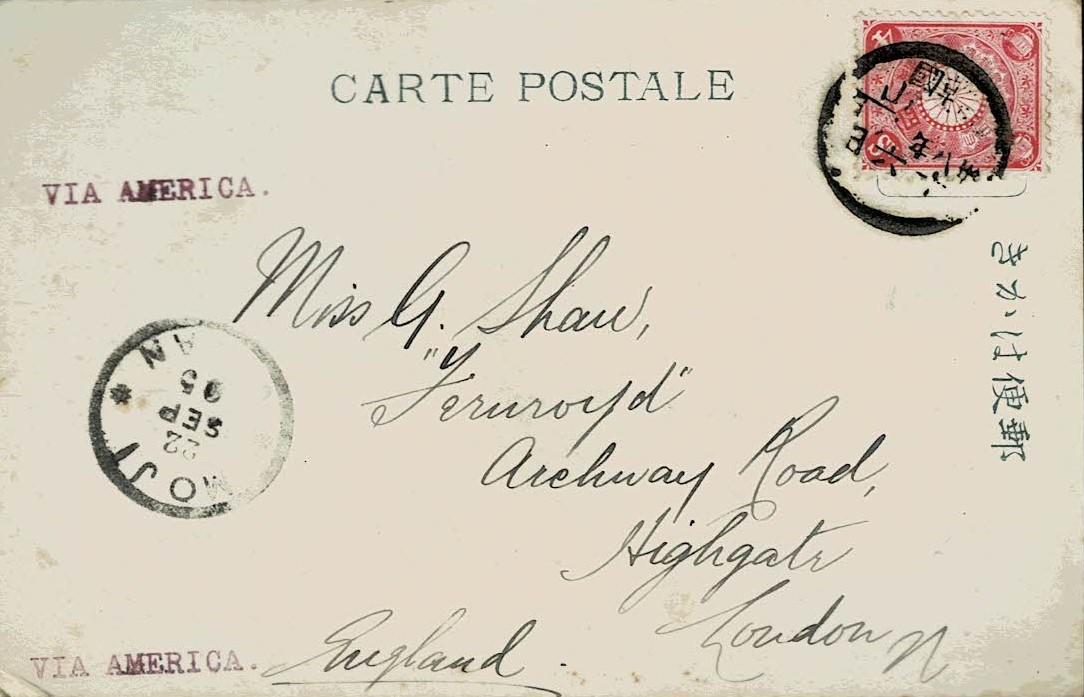 CARTE POSTALE
VIA AMERICA.
郵便はかき
Miss G. Shaw,
"Fernroyd"
Archway Road,
Highgate
London N
England.
MOJI
22
SEP
05
AN
VIA AMERICA.